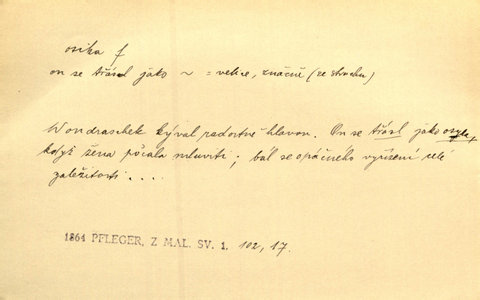 osika f
on se třásl jako ~ = velice, značně (ze strachu)
Wondraschek kýval radostně hlavou. On se třásl jako osyka,
když žena počala mluviti; bál se opáčného vyřízení celé
záležitosti....
1864 PFLEGER, Z MAL. SV. 1, 102, 17.